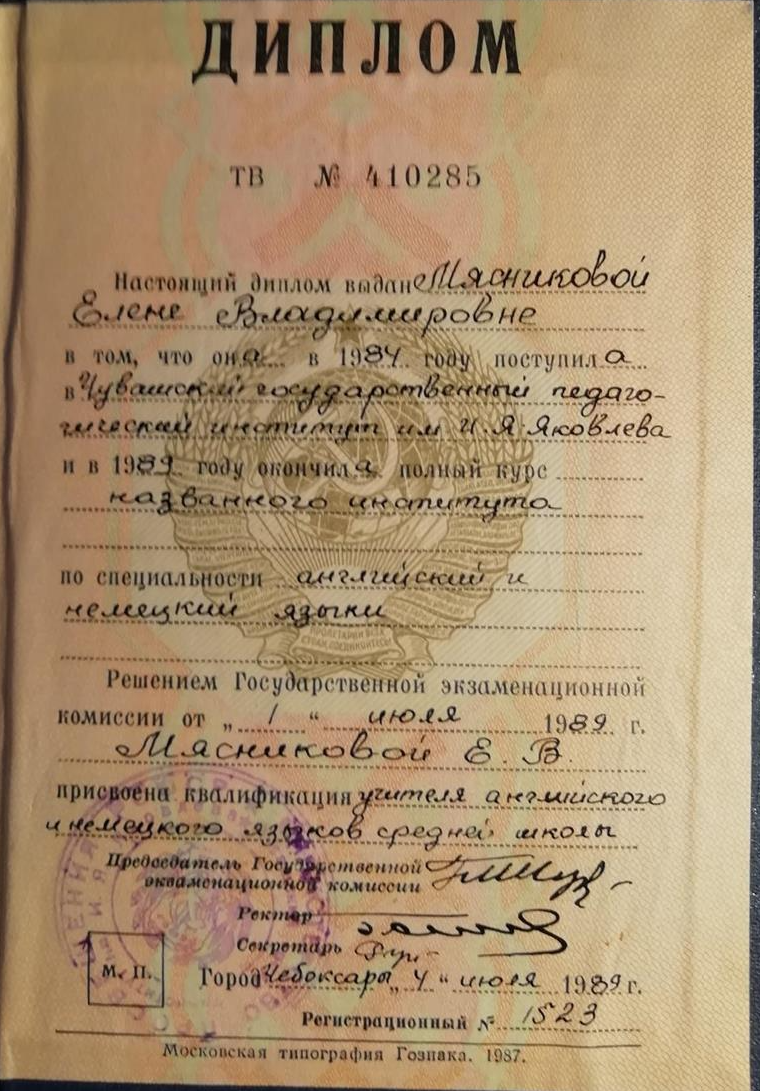 ДИПЛОМ
ТВ № 410285
Настоящий диплом выдан Мясниковой
Елене Владимировне
в том, что она в 1984 году поступила
в Чувашский государственный педаго-
гический институт им И.Я.Яковлева
и в 1989 году окончила полный курс
названного института
по специальности английский и
немецкий языки
ПРОЛЕТАРИИ ВСЕХ
СТРАН, СОЕДИНЯЙТЕСЬ!
Решением Государственной экзаменационной
комиссии от „ 1 “ июля 1989 г.
Мясниковой Е. В.
присвоена квалификация учителя английского
и немецкого языков средней школы
Председатель Государственной
экзаменационной комиссии
Ректор
Секретарь
М. П.
Город Чебоксары „ 4 “ июля 1989 г.
Регистрационный № 1523
Московская типография Гознака. 1987.